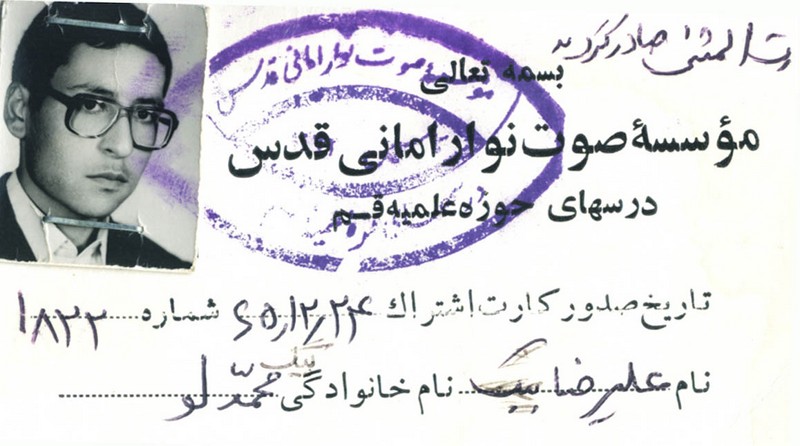 رت المثنی صادر گردید
صوت نوار امانی قدس
بسمه تعالی
مؤسسهٔ صوت نوار امانی قدس
درسهای حوزه علمیه قم
تاریخ صدور کارت اشتراک ۶۵/۱۲/۲۴ شماره ۱۸۲۲
نام علیرضا بیک نام خانوادگی بیک محمدلو